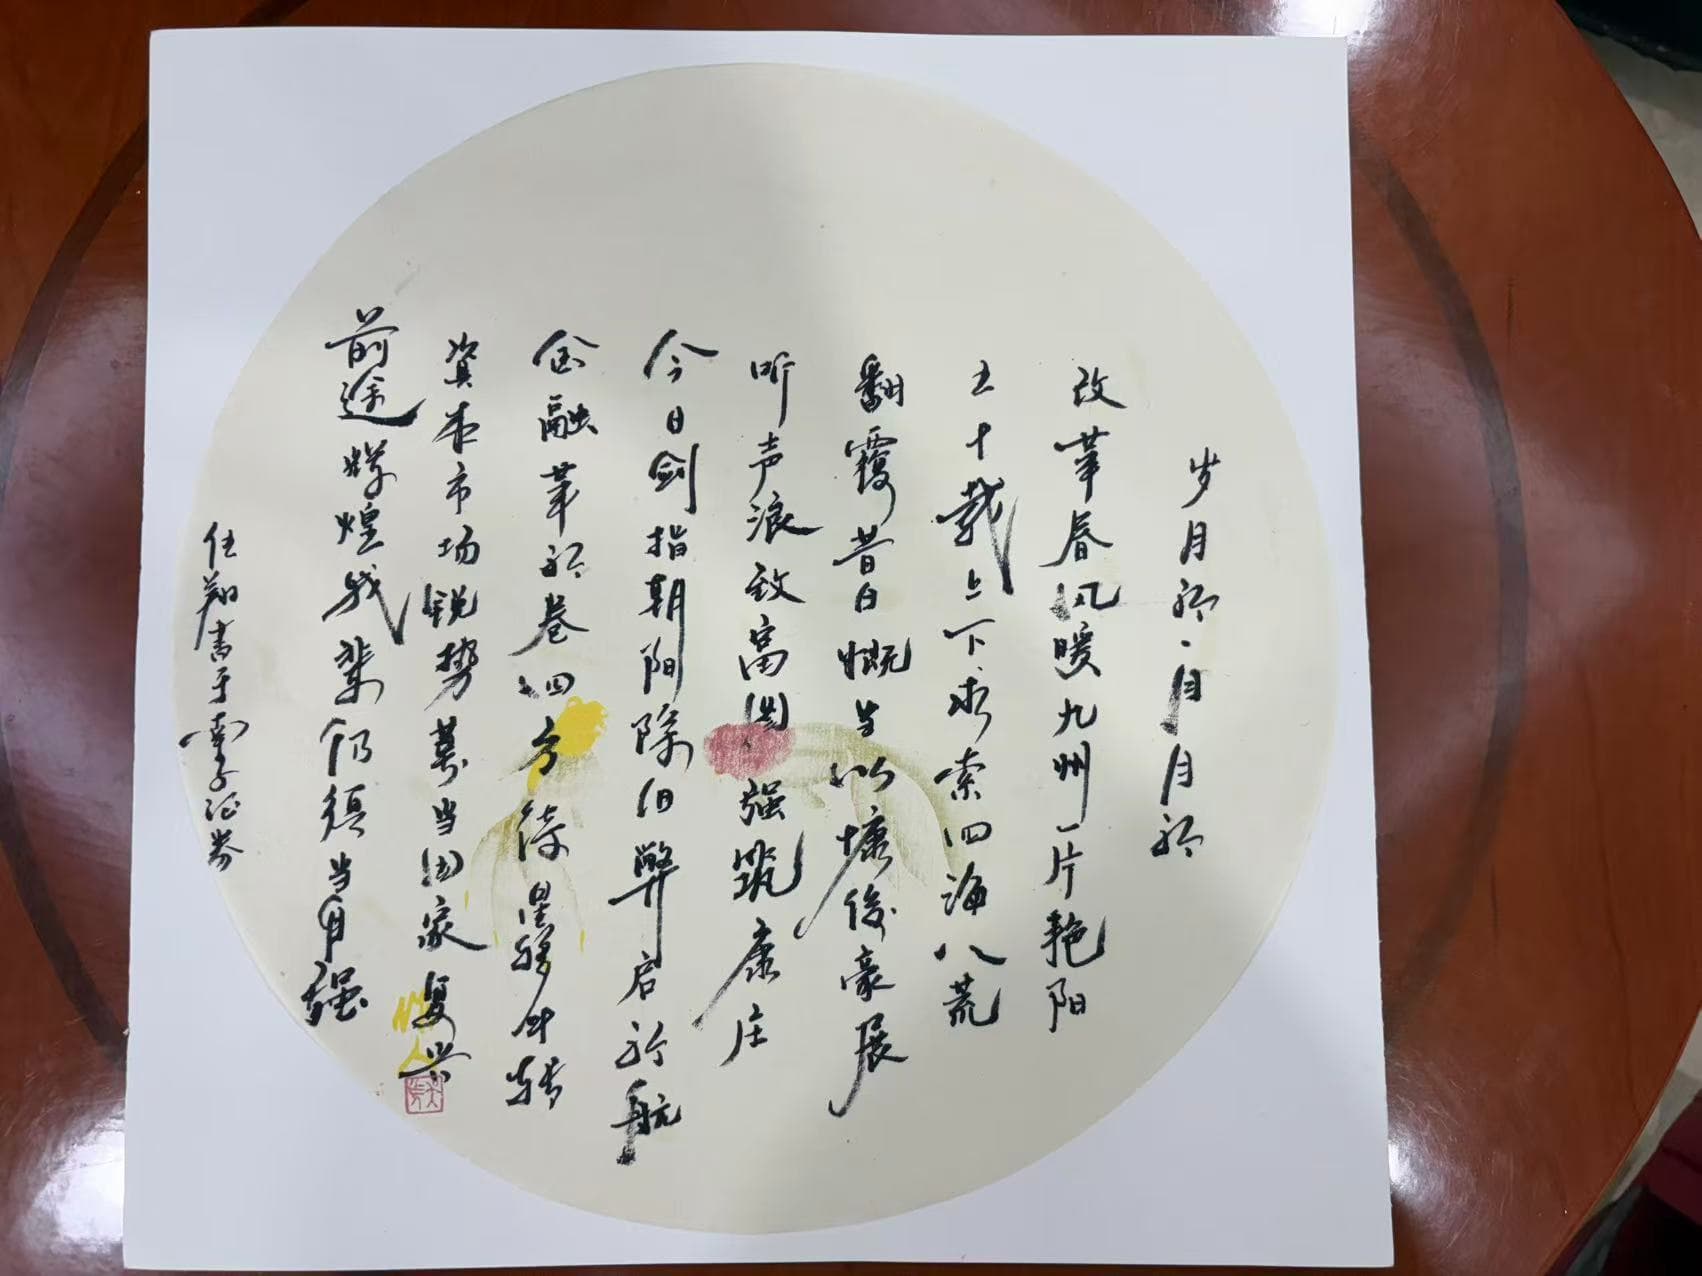 岁月新·月月新
改革春风暖九州一片艳阳
五十载上下求索四海八荒
翻覆昔日慨当以慷俊豪展
听声浪致富国强筑康庄
今日剑指朝阳除旧弊启新航
金融革新卷四方待星移斗转
资本市场锐势善当国家复兴
前途辉煌我辈仍须当自强
任翔书于 证券